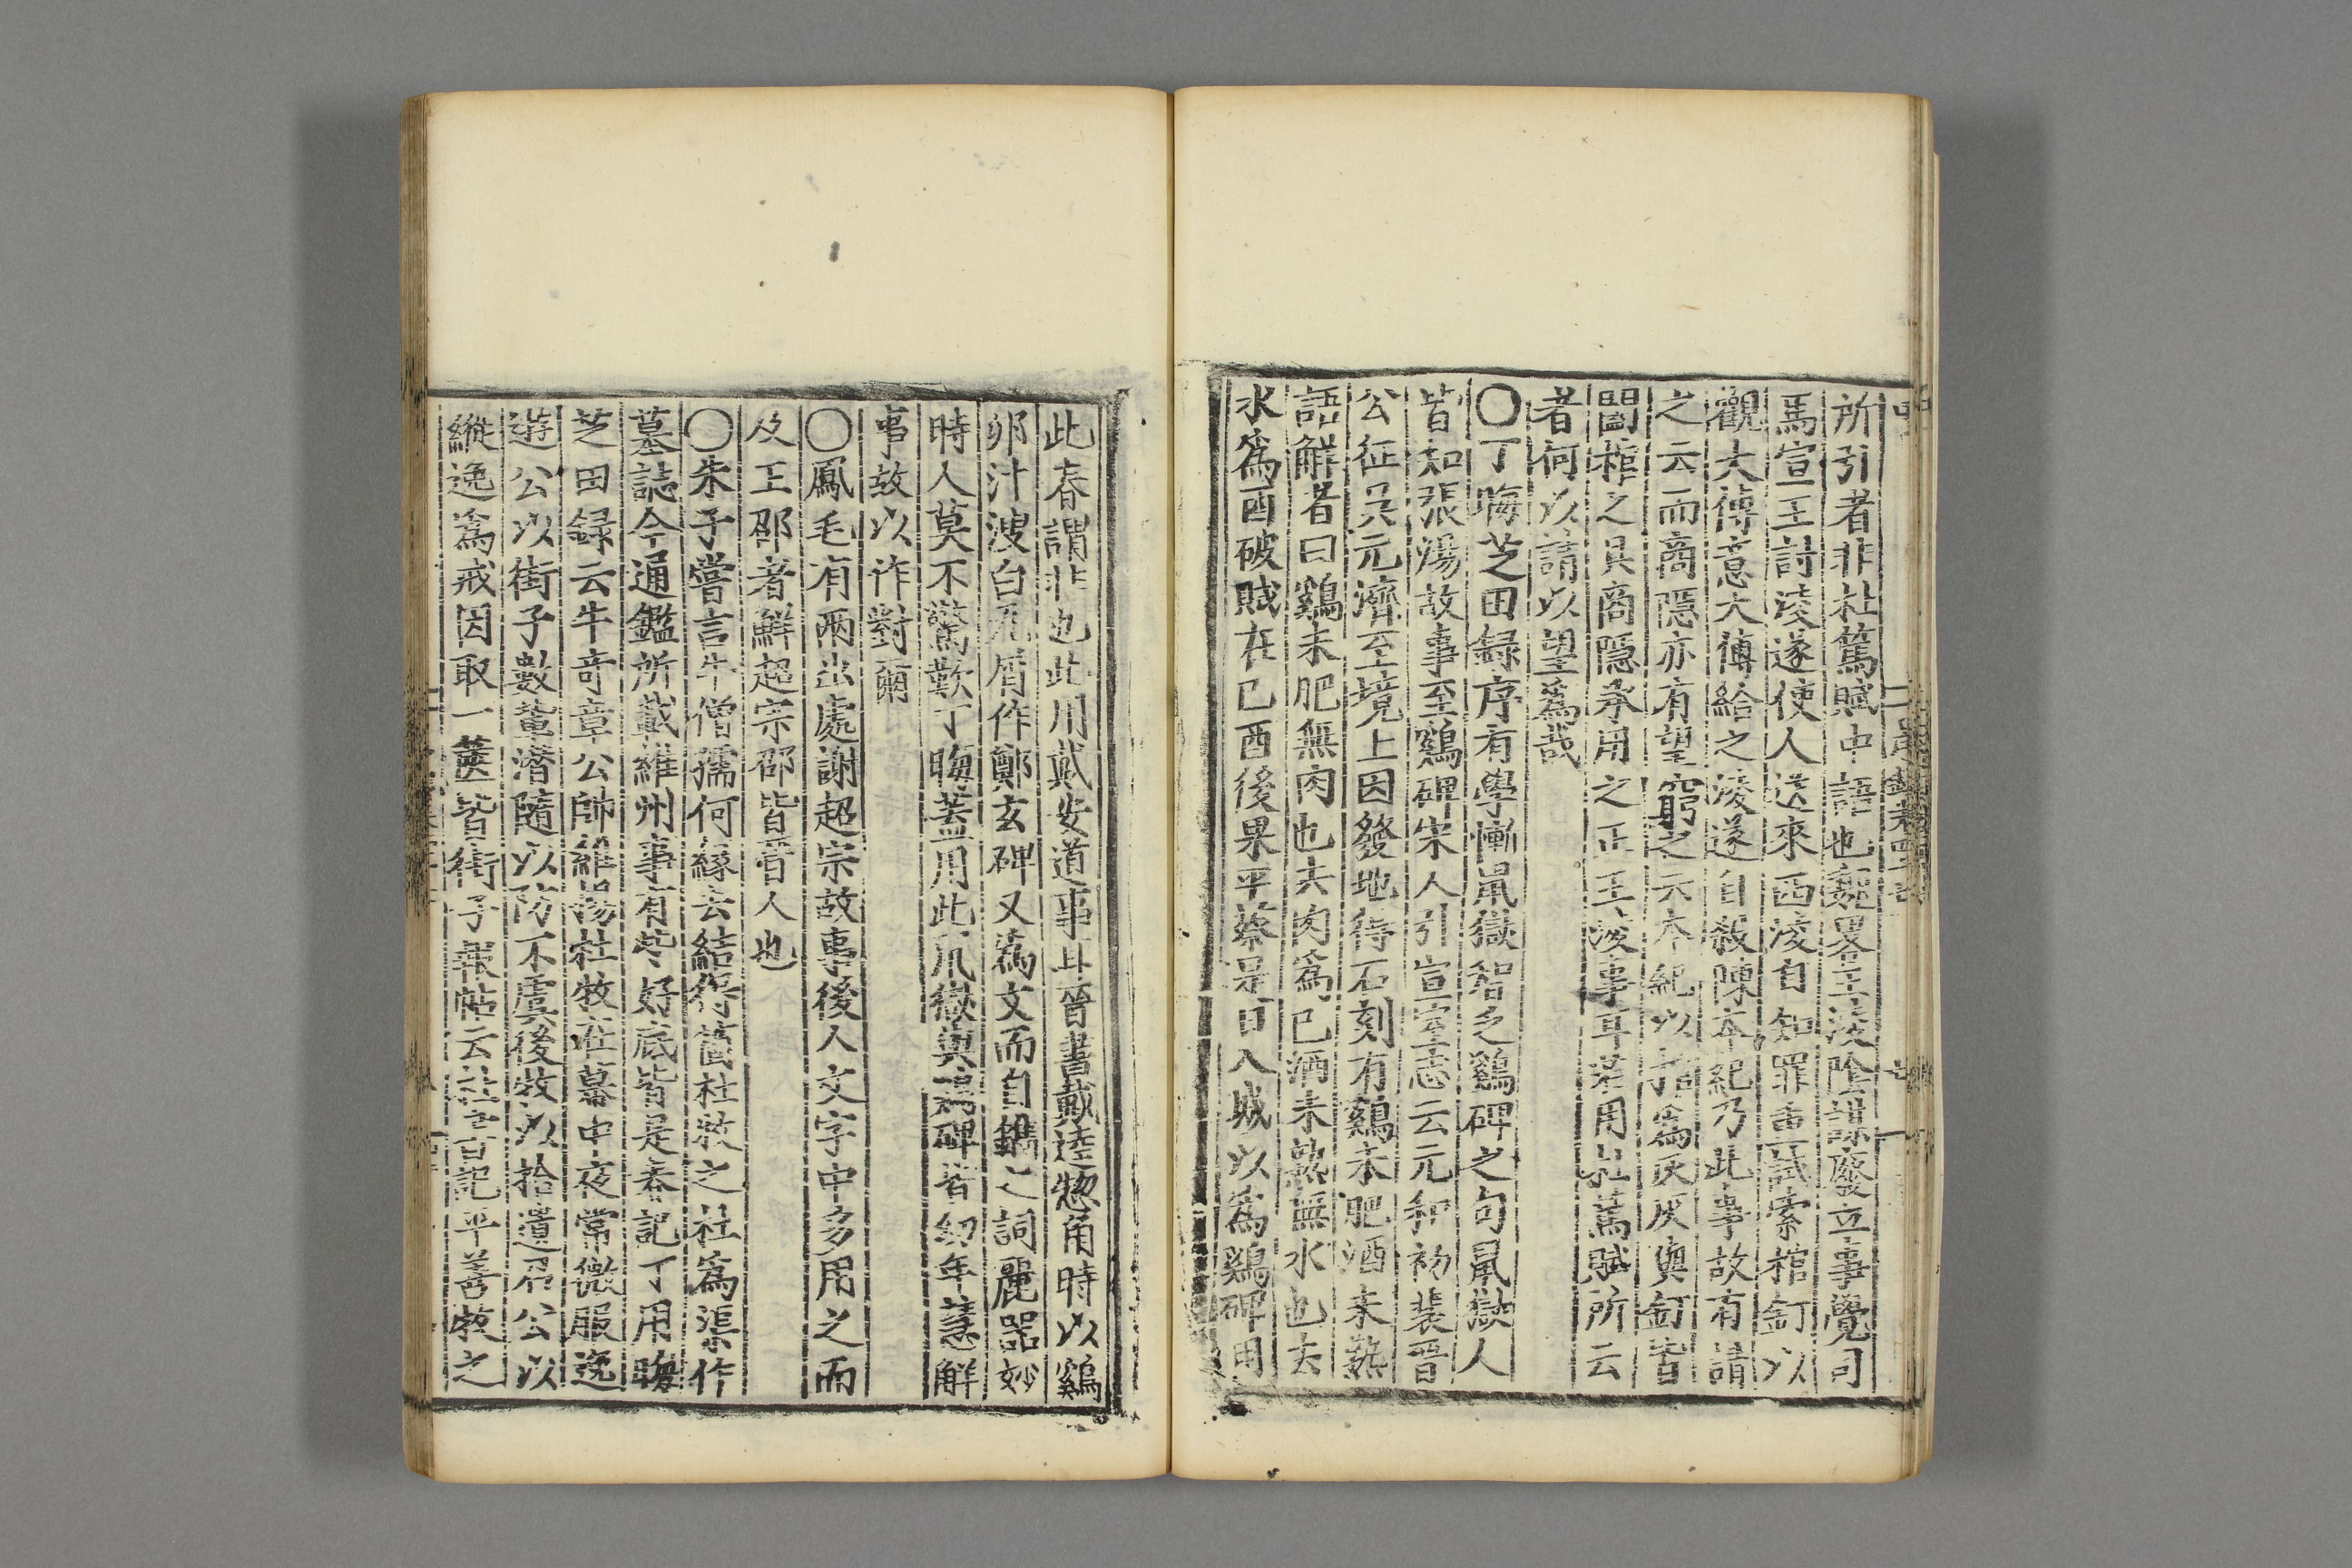 所引者非杜篤賦中語也魏畧王淩陰謀廢立事覺司
馬宣王討淩遂使人送來西淩自知罪重試索棺釘以
觀大傅意大傅給之淩遂自殺陳本紀乃此事故有請
之云而商隱亦有望窮之云本紀以指爲灰灰與釘皆
闔棺之具商隱承用之正王淩事耳若用杜篤賦所云
者何以請以望爲哉
〇丁晦芝田録序有學慚鼠獄智乏鷄碑之句鼠獄人
皆知張湯故事至鷄碑宋人引宣室志云元和初裴晋
公征吳元濟至境上因發地得石刻有鷄未肥酒未熟
語解者曰鷄未肥無肉也去肉爲己酒未熟無水也去
水爲酉破賊在己酉後果平蔡是日入城以爲鷄碑用
此春謂非也此用戴安道事耳晉書戴逵揔角時以鷄
卵汁溲白瓦屑作鄭玄碑又爲文而自鐫之詞麗器妙
時人莫不驚歎丁晦盖用此爪獄與鷄碑皆幼年慧解
事故以作對爾
〇鳳毛有兩出處謝超宗故事後人文字中多用之而
及王邵者鮮超宗邵皆晋人也
〇朱子嘗言牛僧孺何緣去結得箇杜牧之杜爲渠作
墓誌今通鑑所載維州事有些好底皆是春記丁用晦
芝田録云牛竒章公帥維揚杜牧在幕中夜常微服逸
遊公以街子數軰潛隨以防不虞後牧以拾遺召公以
縱逸爲戒因取一篋皆街子報帖云杜書記平善牧之